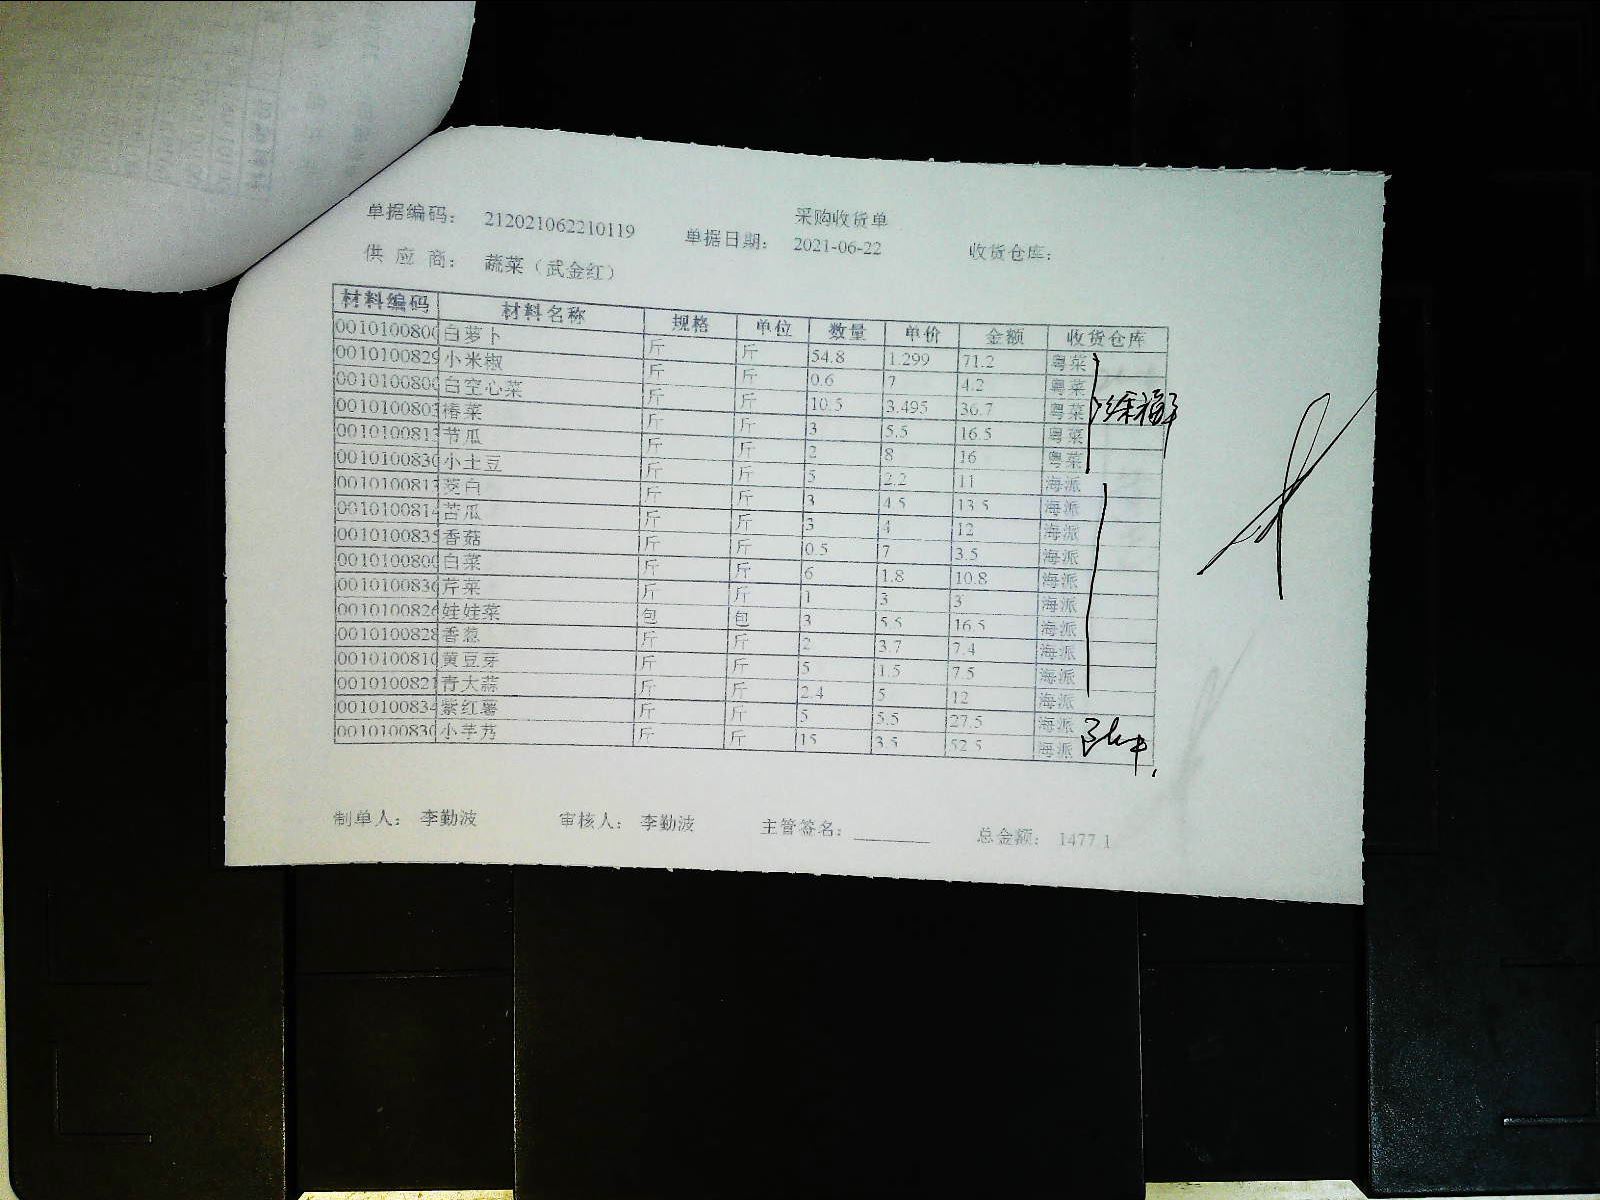 采购收货单
单据编码： 212021062210119 单据日期： 2021-06-22 收货仓库：
供 应 商： 蔬菜（武金红）
材料编码 材料名称 规格 单位 数量 单价 金额 收货仓库
0010100800 白萝卜 斤 斤 54.8 1.299 71.2 粤菜
0010100829 小米椒 斤 斤 0.6 7 4.2 粤菜
0010100800 白空心菜 斤 斤 10.5 3.495 36.7 粤菜
001010080 椿菜 斤 斤 3 5.5 16.5 粤菜
001010081 节瓜 斤 斤 2 8 16 粤菜
0010100830 小土豆 斤 斤 5 2.2 11 海派
001010081 茭白 斤 斤 3 4.5 13.5 海派
0010100814 苦瓜 斤 斤 3 4 12 海派
0010100835 香菇 斤 斤 0.5 7 3.5 海派
0010100800 白菜 斤 斤 6 1.8 10.8 海派
0010100830 芹菜 斤 斤 1 3 3 海派
0010100826 娃娃菜 包 包 3 5.5 16.5 海派
0010100828 香葱 斤 斤 2 3.7 7.4 海派
0010100810 黄豆芽 斤 斤 5 1.5 7.5 海派
0010100821 青大蒜 斤 斤 2.4 5 12 海派
0010100834 紫红薯 斤 斤 5 5.5 27.5 海派
0010100830 小芋艿 斤 斤 15 3.5 52.5 海派
制单人： 李勤波 审核人： 李勤波 主管签名： 总金额： 1477.1